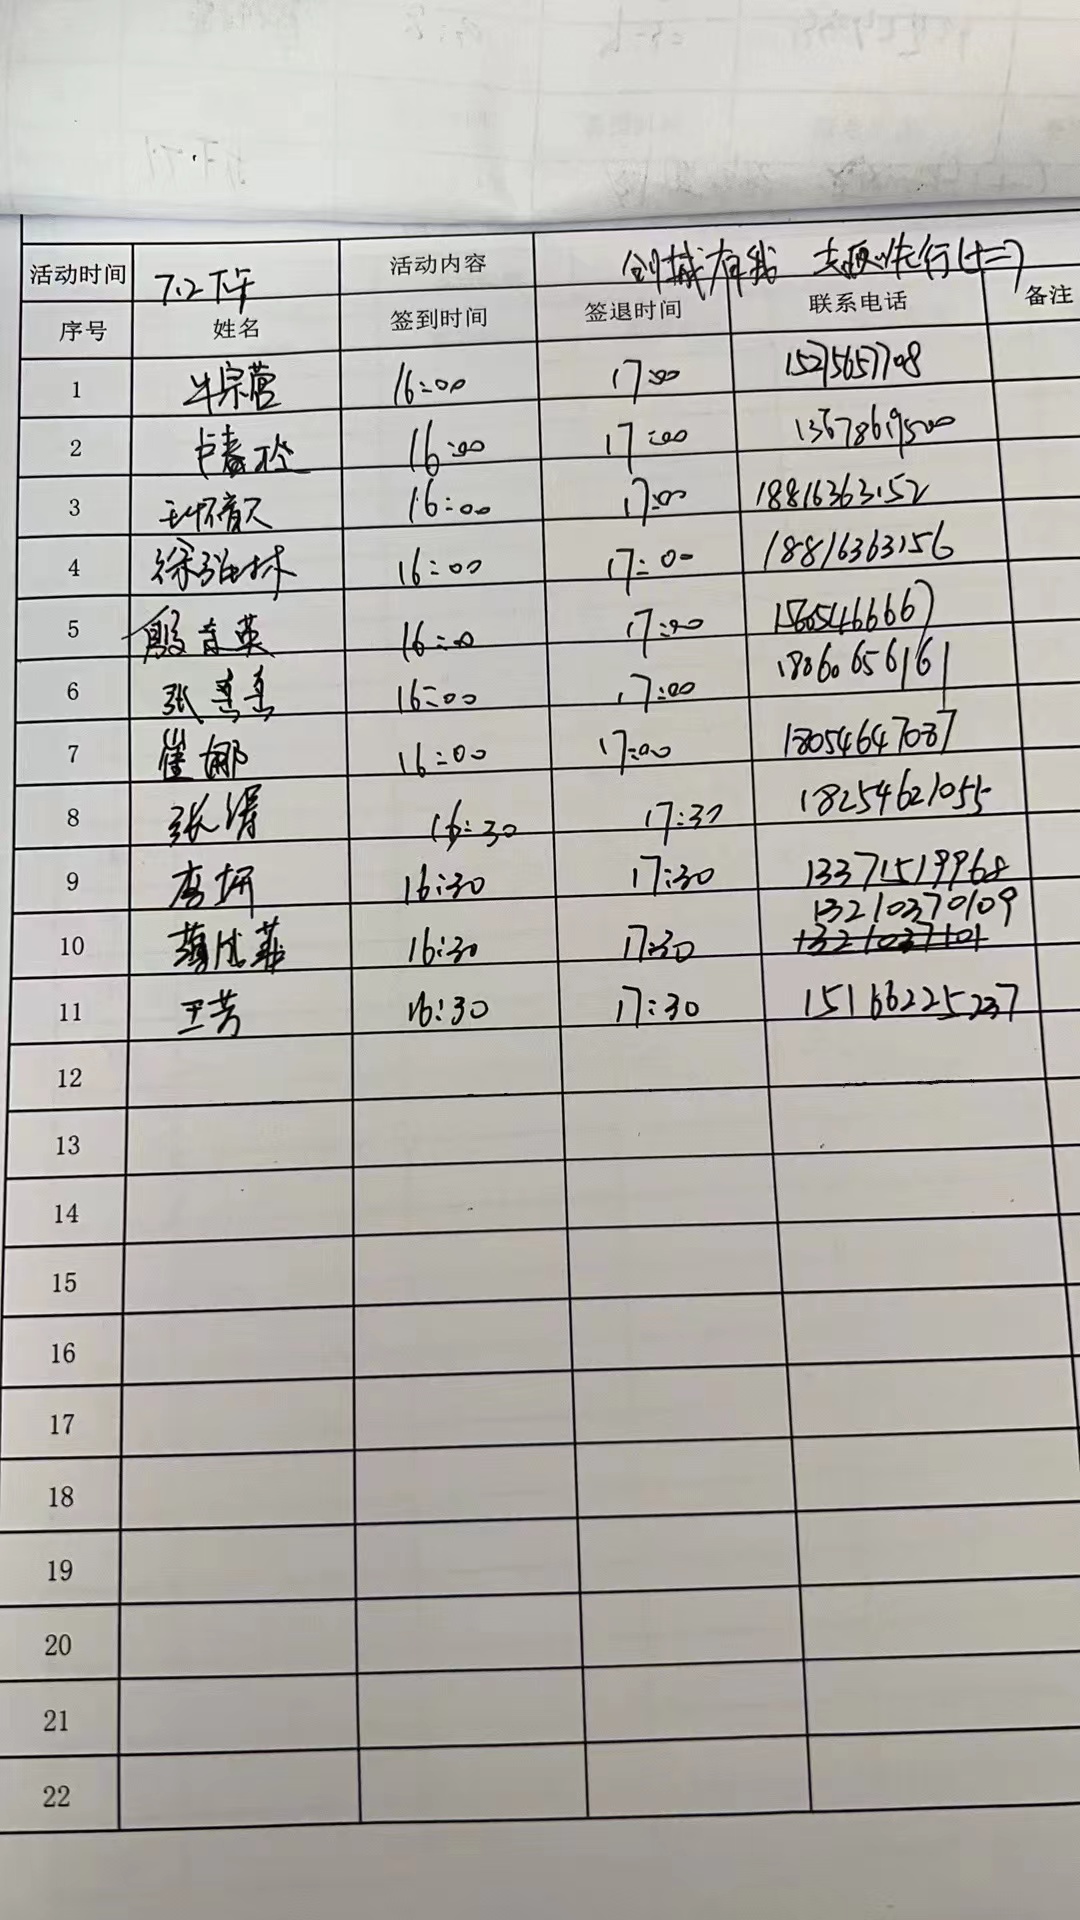 活动时间 7.2下午 活动内容 创城有我 志愿先行(十二)
序号 姓名 签到时间 签退时间 联系电话 备注
1 牛宗营 16:00 17:00 15275657708
2 卢春 16:00 17:00 13678619500
3 16:00 17:00 18816363152
4 徐 林 16:00 17:00 18816363156
5 殷 英 16:00 17:00 15605466667
6 张 16:00 17:00 18060656161
7 崔娜 16:00 17:00 18054647087
8 张涛 16:30 17:30 18254621055
9 李妍 16:30 17:30 13371519968
13210370109
10 16:30 17:30 1321037101
11 王芳 16:30 17:30 15166225237
12
13
14
15
16
17
18
19
20
21
22